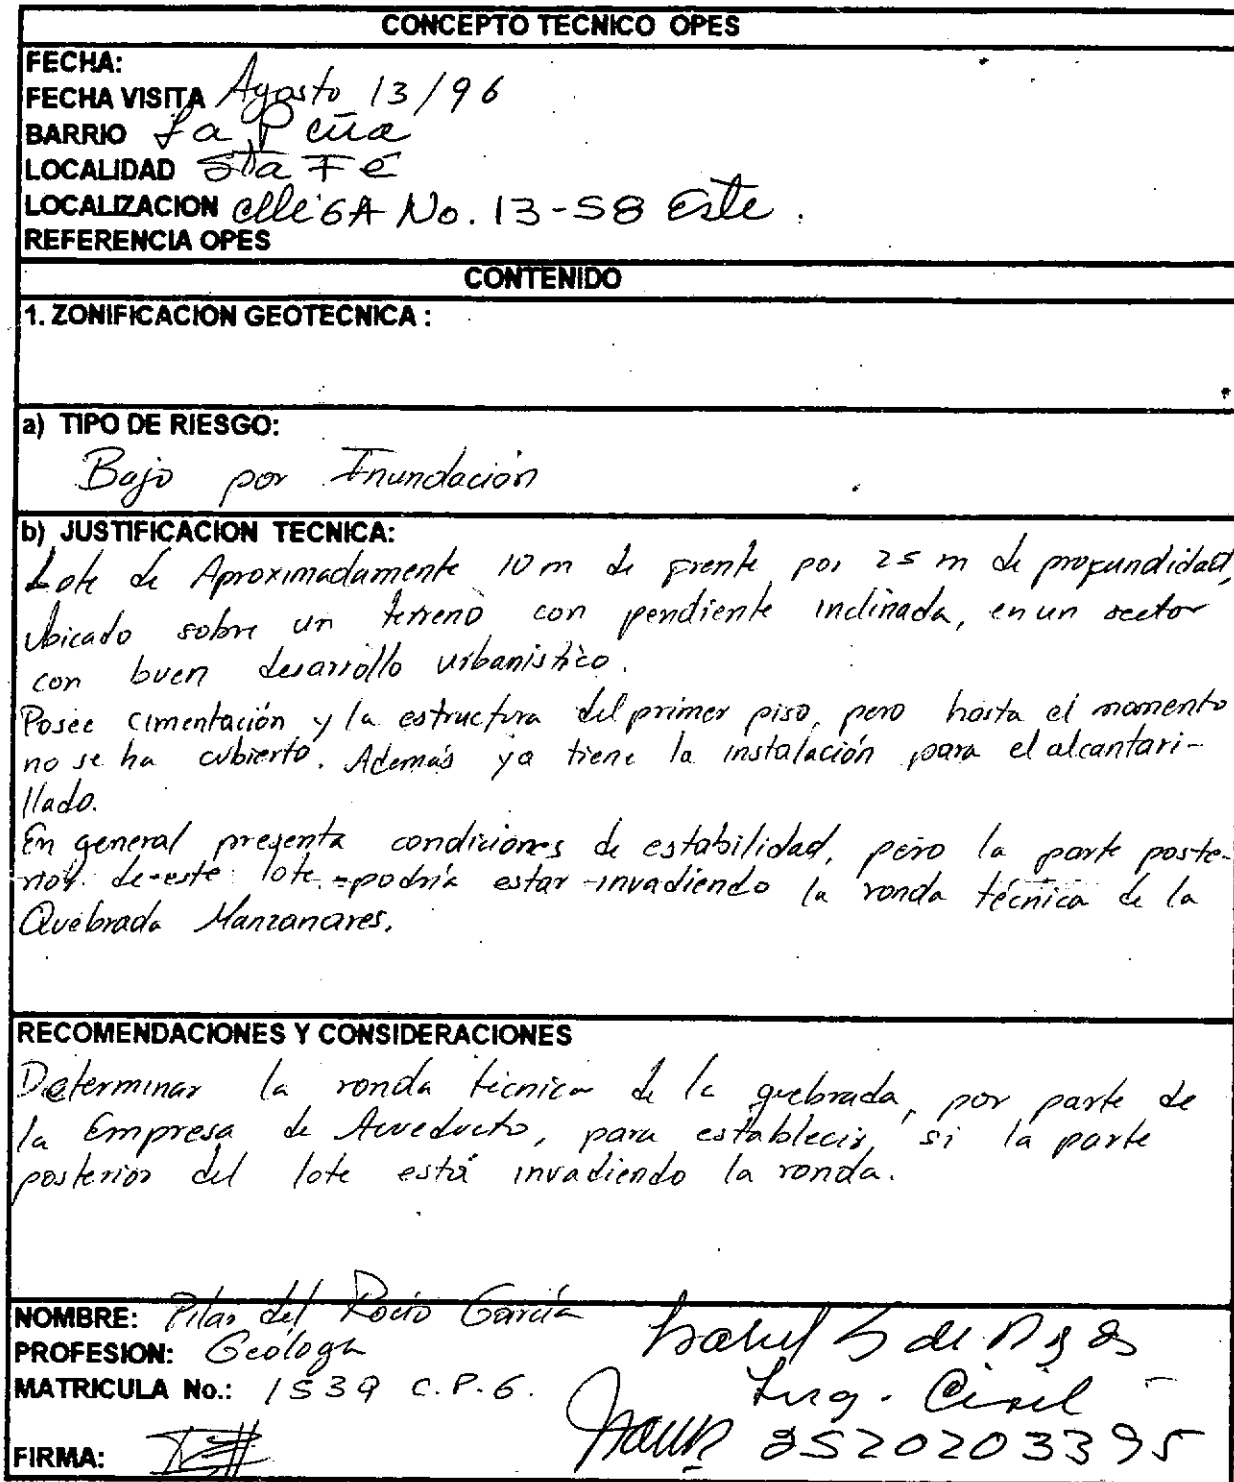 CONCEPTO TECNICO OPES
FECHA:
FECHA VISITA Agosto 13/96
BARRIO La Peña
LOCALIDAD Sta Fé
LOCALIZACION clle 6A No. 13-58 Este.
REFERENCIA OPES
CONTENIDO
1. ZONIFICACION GEOTECNICA :
a) TIPO DE RIESGO:
Bajo por Inundación
b) JUSTIFICACION TECNICA:
Lote de Aproximadamente 10 m de frente por 25 m de profundidad,
ubicado sobre un terreno con pendiente inclinada, en un sector
con buen desarrollo urbanistico.
Posee cimentación y la estructura del primer piso, pero hasta el momento
no se ha cubierto. Además ya tiene la instalación para el alcantari-
llado.
En general presenta condiciones de estabilidad, pero la parte poste-
rior de este lote podría estar invadiendo la ronda técnica de la
Quebrada Manzanares.
RECOMENDACIONES Y CONSIDERACIONES
Determinar la ronda técnica de la quebrada, por parte de
la Empresa de Acueducto, para establecer, si la parte
posterior del lote está invadiendo la ronda.
NOMBRE: Pilar del Rocío García
PROFESION: Geóloga
MATRICULA No.: 1539 C.P.G.
Ing. Civil
2520203395
FIRMA: